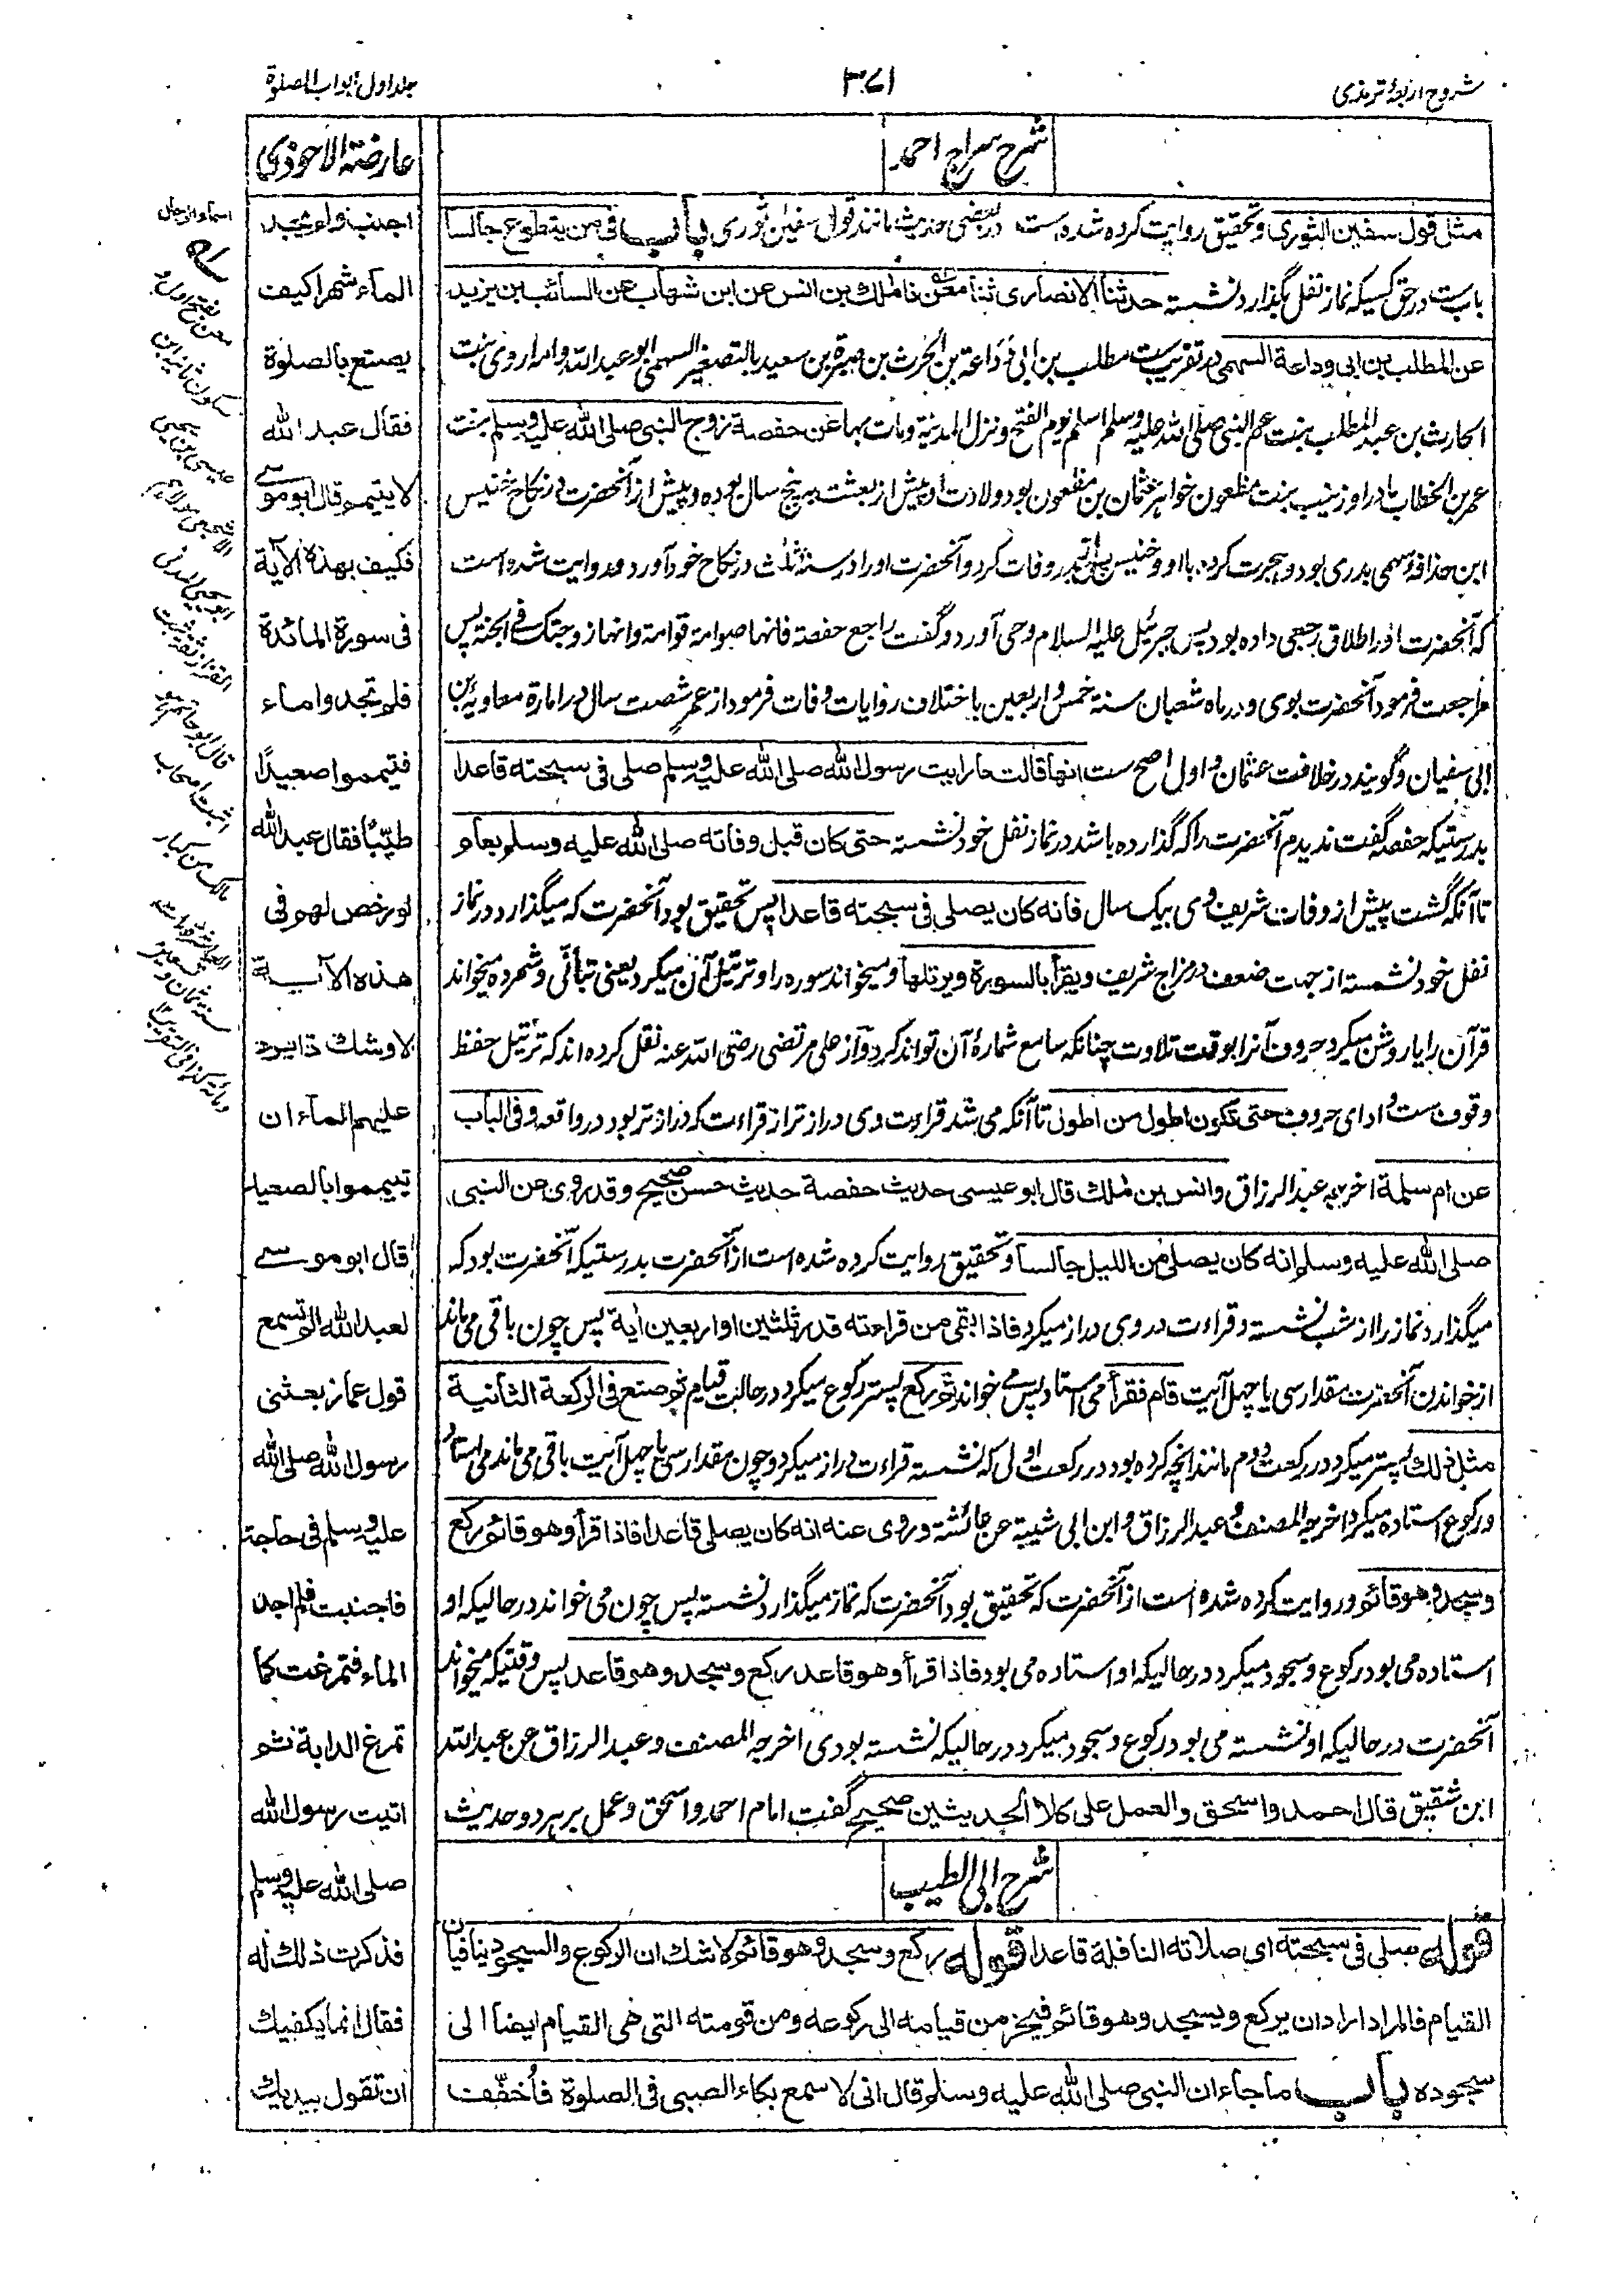 شروح اربعۀ ترمذی
۳۷۱
جلد اول ابواب الصلوٰة
شرح سراج احمد
مثل قول سفین الثوری وتحقیق روایت کرده شده ست در بعضی حدیث مانند قول سفین ثوری باب فی من یتطوع جالسا
باب ست در حق کسیکه نماز نفل بگذارد نشسته حدثنا الانصاری ثنا معن نا ملك بن انس عن ابن شهاب عن السائب بن یزید
عن المطلب بن ابی وداعة السهمی در تقریب ست مطلب بن ابی وداعة بن الحرث بن صبرة بن سعید بالتصغیر السهمی ابو عبد الله وامه اروی بنت
الحارث بن عبد المطلب بنت عم النبی صلی الله علیه وسلم اسلم یوم الفتح ونزل المدنیة ومات بها عن حفصة زوج النبی صلی الله علیه وسلم بنت
عمر بن الخطاب مادر او زینب بنت مظعون خواهر عثمان بن مظعون بود ولادت او پیش از بعثت به پنج سال بوده وپیش از آنحضرت در نکاح خنیس
ابن حذافۀ سهمی بدری بود وهجرت کرده با او وخنیس بدر وفات کرد وآنحضرت او را در سنۀ ثلث در نکاح خود آورد و روایت شده است
که آنحضرت او را طلاق رجعی داده بود پس جبرئیل علیه السلام وحی آورد وگفت راجع حفصة فانها صوامة قوامة وانها زوجتك فی الجنة پس
مراجعت فرمود آنحضرت بوی ودر ماه شعبان سنة خمس واربعین باختلاف روایات وفات فرمود از عمر شصت سال در امارة معاویه بن
ابی سفیان وگویند در خلافت عثمان واول اصح ست انها قالت ما رایت رسول الله صلی الله علیه وسلم صلی فی سبحته قاعدا
بدرستیکه حفصه گفت ندیدم آنحضرت را که گذارده باشد در نماز نفل خود نشسته حتی کان قبل وفاته صلی الله علیه وسلم بعام
تا آنکه گشت پیش از وفات شریف وی بیک سال فانه کان یصلی فی سبحته قاعدا پس تحقیق بود آنحضرت که میگذارد در نماز
نفل خود نشسته از جهت ضعف در مزاج شریف ویقرأ بالسورة ویرتلها ومیخواند سوره را وترتیل آن میکرد یعنی بتأنی وشمرده میخواند
قرآن را یا روشن میکرد حروف آنرا بوقت تلاوت چنانکه سامع شمارۀ آن تواند کرد واز علی مرتضی رضی الله عنه نقل کرده اند که ترتیل حفظ
وقوف ست وادای حروف حتی تکون اطول من اطول تا آنکه می شد قراءت وی دراز تر از قراءت که دراز تر بود در واقعه وفی الباب
عن ام سلمة اخرجه عبد الرزاق وانس بن ملك قال ابو عیسی حدیث حفصة حدیث حسن صحیح وقد روی عن النبی
صلی الله علیه وسلم انه کان یصلی من اللیل جالسا وتحقیق روایت کرده شده است از آنحضرت بدرستیکه آنحضرت بود که
میگذارد نماز را از شب نشسته وقراءت در وی دراز میکرد فاذا بقی من قراءته قدر ثلثین او اربعین آیة پس چون باقی می ماند
از خواندن آنحضرت مقدار سی یا چهل آیت قام فقرأ می استاد پس می خواند ثم رکع پستر رکوع میکرد در حالت قیام ثم صنع فی الرکعة الثانیة
مثل ذلك پستر میکرد در رکعت دوم مانند آنچه کرده بود در رکعت اولی که نشسته قراءت دراز میکرد وچون مقدار سی یا چهل آیت باقی می ماند می استاد
ورکوع استاده میکرد اخرجه المصنف وعبد الرزاق وابن ابی شیبة عن عائشة وروی عنه انه کان یصلی قاعدا فاذا قرأ وهو قائم رکع
وسجد وهو قائم وروایت کرده شده است از آنحضرت که تحقیق بود آنحضرت که نماز میگذارد نشسته پس چون می خواند در حالیکه او
استاده می بود رکوع وسجود میکرد در حالیکه او استاده می بود فاذا قرأ وهو قاعد رکع وسجد وهو قاعد پس وقتیکه میخواند
آنحضرت در حالیکه او نشسته می بود رکوع وسجود میکرد در حالیکه نشسته بودی اخرجه المصنف وعبد الرزاق عن عبد الله
ابن شقیق قال احمد واسحق والعمل علی کلا الحدیثین صحیح گفت امام احمد واسحق وعمل بر هر دو حدیث
شرح ابی الطیب
قوله صلی فی سبحته ای صلاته النافلة قاعدا قوله رکع وسجد وهو قائم لا شك ان الرکوع والسجود ینافیان
القیام فالمراد اراد ان یرکع ویسجد وهو قائم فیخر من قیامه الی رکوعه ومن قومته التی هی القیام ایضا الی
سجوده باب ما جاء ان النبی صلی الله علیه وسلم قال انی لاسمع بکاء الصبی فی الصلوة فاخفف
عارضة الاحوذی
اجنب ولم یجد
الماء شهرا کیف
یصنع بالصلوة
فقال عبد الله
لا یتیمم وقال ابو موسے
فکیف بهذه الآیة
فی سورة المائدة
فلم تجدوا ماء
فتیمموا صعیدًا
طیّبًا فقال عبد الله
لو رخص لهم فی
هذه الآیة
لاوشك اذا برد
علیهم الماء ان
یتیمموا بالصعید
قال ابو موسے
لعبد الله الم تسمع
قول عمار بعثنی
رسول الله صلی الله
علیه وسلم فی حاجة
فاجنبت فلم اجد
الماء فتمرغت کما
تمرغ الدابة ثم
اتیت رسول الله
صلی الله علیه وسلم
فذکرت ذلك له
فقال انما یکفیك
ان تقول بیدیك
اسماء الرجال
معن بفتح اول و
سکون ثانیه ابن
عیسی بن یحیی
الاشجعی مولاهم
ابو یحیی المدنی
القزاز ثقة ثبت
قال ابو حاتم هو
اثبت اصحاب
مالك من کبار
العاشرة مات
سنة ثمان وتسعین
ومائة کذا فی التقریب ۱۲